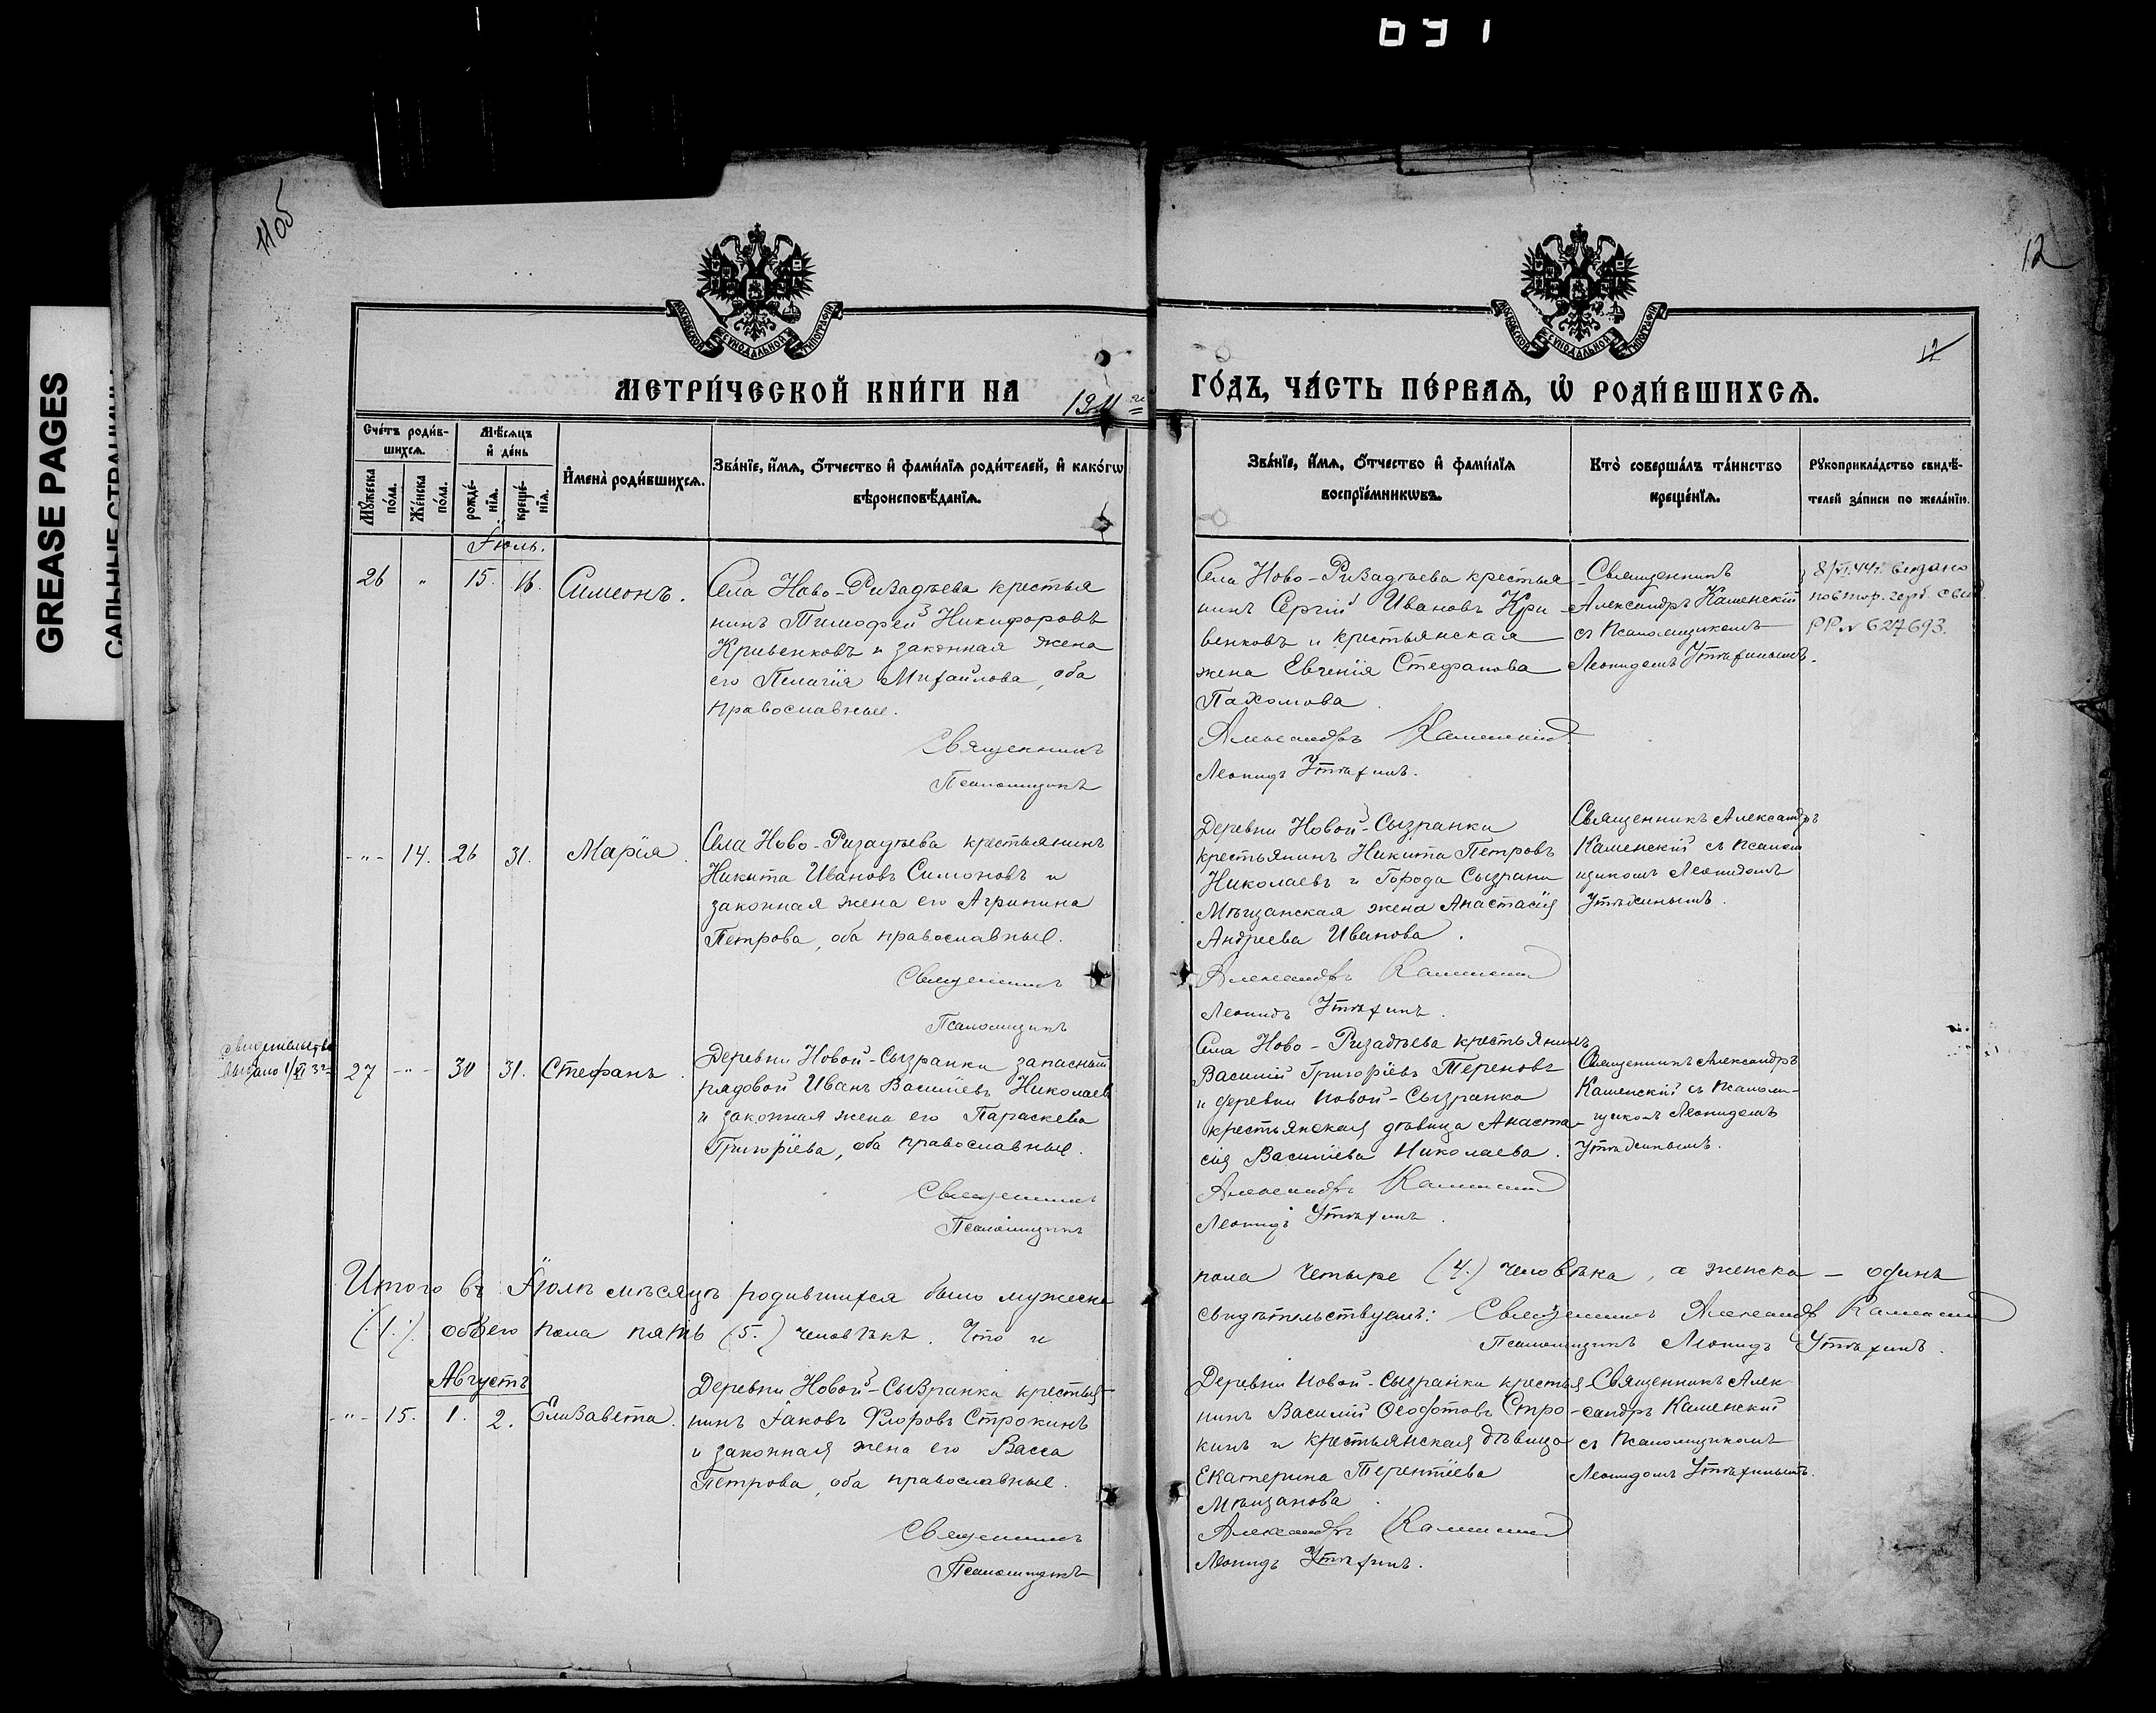 691
GREASE PAGES
САЛЬНЫЕ СТРАНИЦЫ
11об
12
12
МОСКОВСКОЙ СѴНОДАЛЬНОЙ ТИПОГРАФІИ
МОСКОВСКОЙ СѴНОДАЛЬНОЙ ТИПОГРАФІИ
МЕТРИ́ЧЕСКОЙ КНИ́ГИ НА 1911 го
ГО́ДЪ, ЧА́СТЬ ПЕ́РВАЯ, Ѡ РОДИ́ВШИХСЯ.
Сче́тъ роди́в-
шихся.
Мѣ́сяцъ
и҆ де́нь
Мꙋ́жеска по́ла.
Же́нска по́ла.
рожде́-
нія.
креще́-
нія.
И҆мена̀ роди́вшихся.
Зва́нїе, и҆́мя, ѻ҆́тчество и҆ фами́лїя роди́телей, и҆ како́гѡ
вѣроисповѣ́данїя.
Зва́нїе, и҆́мя, ѻ҆́тчество и҆ фами́лїя
воспрїе́мникѡвъ.
Кто̀ соверша́лъ та́инство
креще́нїя.
Рꙋкоприкла́дство свидѣ́-
телей за́писи по жела́нїю.
Іюль.
26 " 15. 16. Симеонъ.
Села Ново-Ризадѣева крестья
нинъ Тимофей Никифоровъ
Кривенковъ и законная жена
его Пелагія Михайлова, оба
православные.
Священникъ
Псаломщикъ
Села Ново-Ризадѣева крестья
нинъ Сергій Ивановъ Кри
венковъ и крестьянская
жена Евгенія Стефанова
Пахомова.
Александръ Каменскій
Леонидъ Утѣхинъ.
Священникъ
Александръ Каменскій
съ Псаломщикомъ
Леонидомъ Утѣхинымъ.
8/VI.44г. выдано
повтор. герб. свид.
РР № 627693.
-"- 14. 26 31. Марія.
Села Ново-Ризадѣева крестьянинъ
Никита Ивановъ Симоновъ и
законная жена его Агрипина
Петрова, оба православные.
Священникъ
Псаломщикъ
Деревни Новой-Сызранки
крестьянинъ Никита Петровъ
Николаевъ и Города Сызрани
Мѣщанская жена Анастасія
Андреева Иванова.
Александръ Каменскій
Леонидъ Утѣхинъ.
Священникъ Александръ
Каменскій съ Псалом
щикомъ Леонидомъ
Утѣхинымъ.
Свидетельство
выдано 1/XI 32
27 -"- 30 31. Стефанъ.
Деревни Новой-Сызранки запасный
рядовой Иванъ Василіевъ Николаевъ
и законная жена его Параскева
Григоріева, оба православные.
Священникъ
Псаломщикъ
Села Ново-Ризадѣева крестьянинъ
Василій Григоріевъ Тереновъ
и деревни Новой-Сызранки
крестьянская дѣвица Анаста-
сія Василіева Николаева.
Александръ Каменскій
Леонидъ Утѣхинъ.
Священникъ Александръ
Каменскій съ Псалом-
щикомъ Леонидомъ
Утѣхинымъ.
Итого въ Іюлѣ мѣсяцѣ родившихся было мужеска
пола четыре (4.) человѣка, а женска – одинъ
(1.). обоего пола пять (5.) человѣкъ. Что и
свидѣтельствуемъ: Священникъ Александръ Каменскій
Псаломщикъ Леонидъ Утѣхинъ.
Августъ
-"- 15. 1. 2. Елизавета.
Деревни Новой-Сызранки крестья-
нинъ Іаковъ Флоровъ Строкинъ
и законная жена его Васса
Петрова, оба православные.
Священникъ
Псаломщикъ
Деревни Новой-Сызранки крестья-
нинъ Василій Ѳеодотовъ Стро-
кинъ и крестьянская дѣвица
Екатерина Терентіева
Мѣщанова.
Александръ Каменскій
Леонидъ Утѣхинъ.
Священникъ Алек
сандръ Каменскій
съ Псаломщикомъ
Леонидомъ Утѣхинымъ.